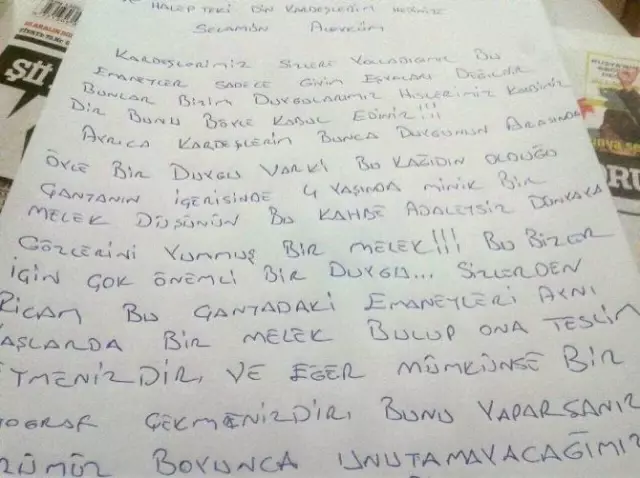 HALEP TEKİ DİN KARDEŞLERİM HEPİNİZE
SELAMÜN ALEYKÜM
KARDEŞLERİMİZ SİZLERE YOLLADIĞIMIZ BU
EMANEYLER SADECE GİYİM EŞYALARI DEĞİLDİR
BUNLAR BİZİM DUYGULARIMIZ HİSLERİMİZ KALBİMİZ
DİR BUNU BÖYLE KABUL EDİNİZ!!!
AYRICA KARDEŞLERİM BUNCA DUYGUNUN ARASINDA
ÖYLE BİR DUYGU VARKİ BU KAĞIDIN OLDUĞU
ÇANTANIN İÇERİSİNDE 4 YAŞINDA MİNİK BİR
MELEK DÜŞÜNÜN BU KAHBE ADALETSİZ DÜNYAYA
GÖZLERİNİ YUMMUŞ BİR MELEK!!! BU BİZLER
İÇİN ÇOK ÖNEMLİ BİR DUYGU... SİZLERDEN
RİCAM BU ÇANTADAKİ EMANEYLERİ AYNI
YAŞLARDA BİR MELEK BULUP ONA TESLİM
ETMENİZDİR, VE EĞER MÜMKÜNSE BİR
FOTOGRAF ÇEKMENİZDİR, BUNU YAPARSANIZ
ÖMRÜMÜZ BOYUNCA UNUTAMAYACAĞIMIZ